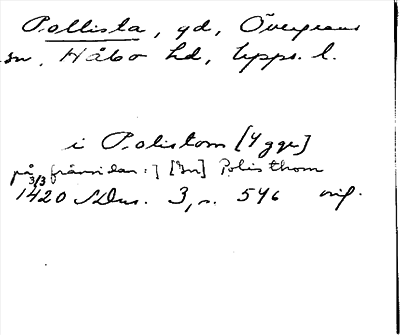 Pollista, gd, Övergrans
sn, Håbo hd, Upps. l.
i Polistom [Ygge]
på framsidan:] [3n] Polisthom
3/3
1420 SDns. 3, s. 546 orig.